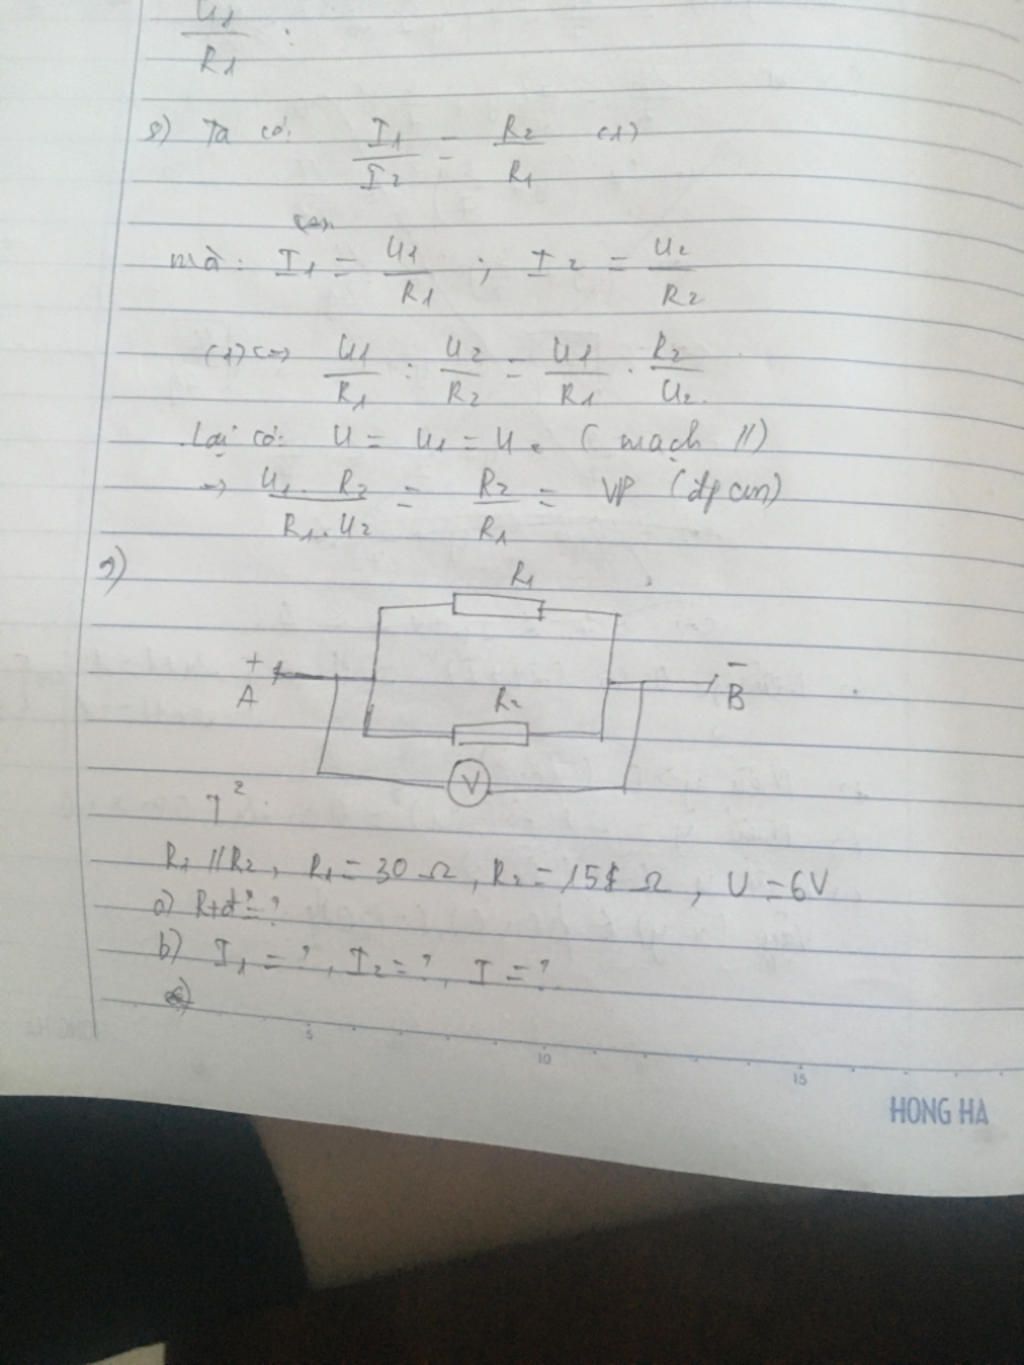 U1
R1
8) Ta có: I1/I2 = R2/R1 (1)
mà: I1 = U1/R1 ; I2 = U2/R2
(1) <=> U1/R1 : U2/R2 = U1/R1 . R2/U2.
Lại có: U = U1 = U2 (mạch //)
-> U1. R2/R1. U2 = R2/R1 = VP (đpcm)
9)
R1
+ -
A B
R2
V
R1 // R2, R1 = 30 Ω, R2 = 15 Ω, U = 6V
a) Rtđ = ?
b) I1 = ?, I2 = ?, I = ?
c)
5 10 15
HONG HA